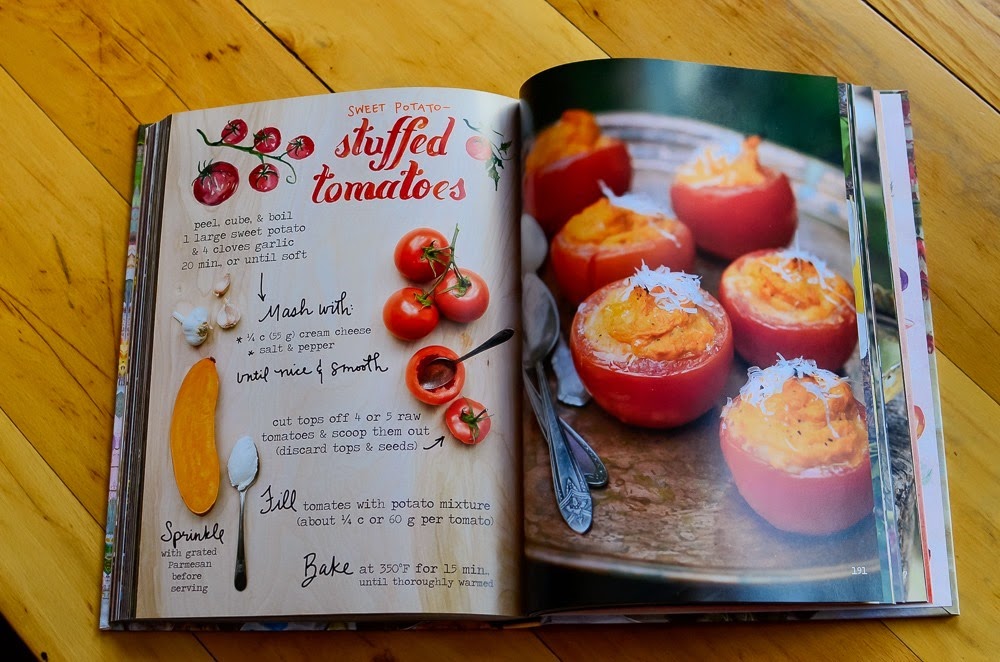 SWEET POTATO-
stuffed
tomatoes
peel, cube, & boil
1 large sweet potato
& 4 cloves garlic
20 min., or until soft
Mash with:
* ¼ c (55 g) cream cheese
* salt & pepper
until nice & smooth
cut tops off 4 or 5 raw
tomatoes & scoop them out
(discard tops & seeds)
Fill tomates with potato mixture
(about ¼ c or 60 g per tomato)
Sprinkle
with grated
Parmesan
before
serving
Bake at 350°F for 15 min.,
until thoroughly warmed
191